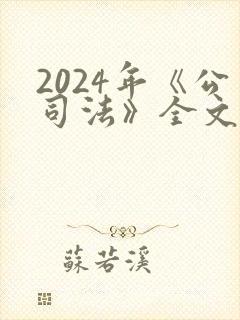 2024年《公
司法》全文
蘇若溪